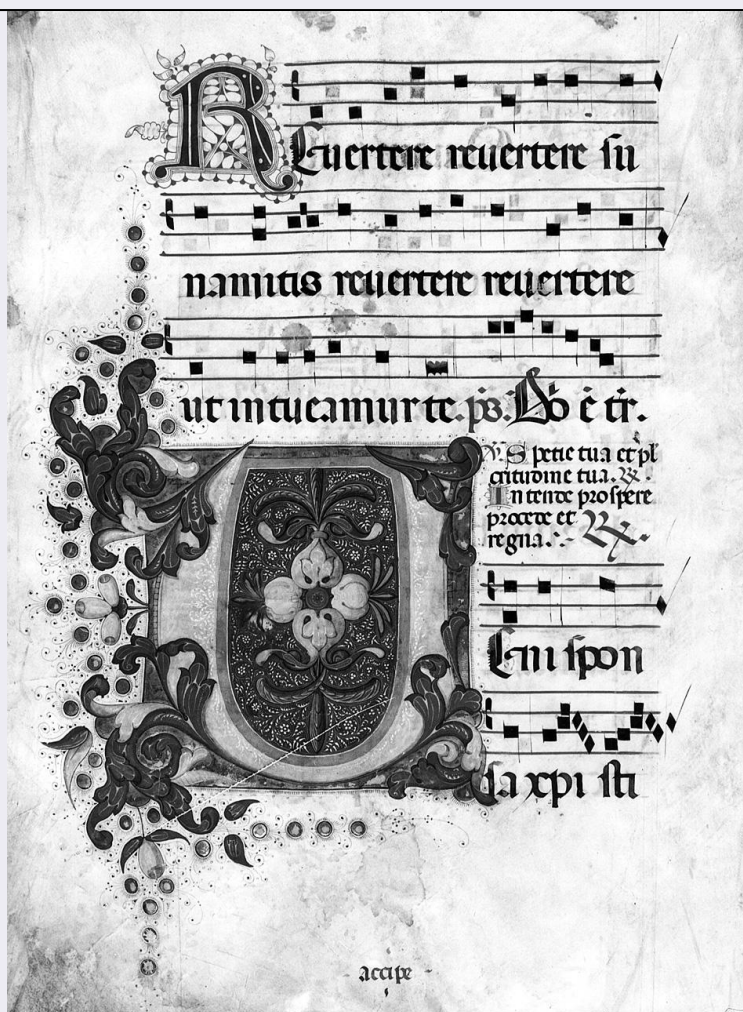 REuertere reuertere su
namitis reuertere reuertere
ut intueamur te. ps. Dō ē tr.
℣. Spetie tua et pl
critudine tua. ℟.
Intende prospere
procede et
regna. ℟.
UEni spon
sa xpi sti
accipe